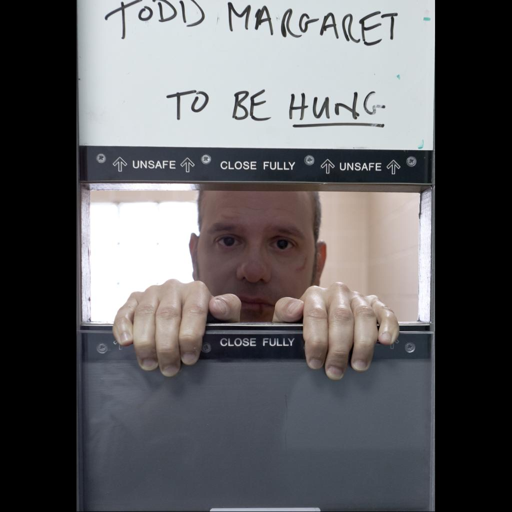 TODD MARGARET
TO BE HUNG
UNSAFE CLOSE FULLY UNSAFE
CLOSE FULLY